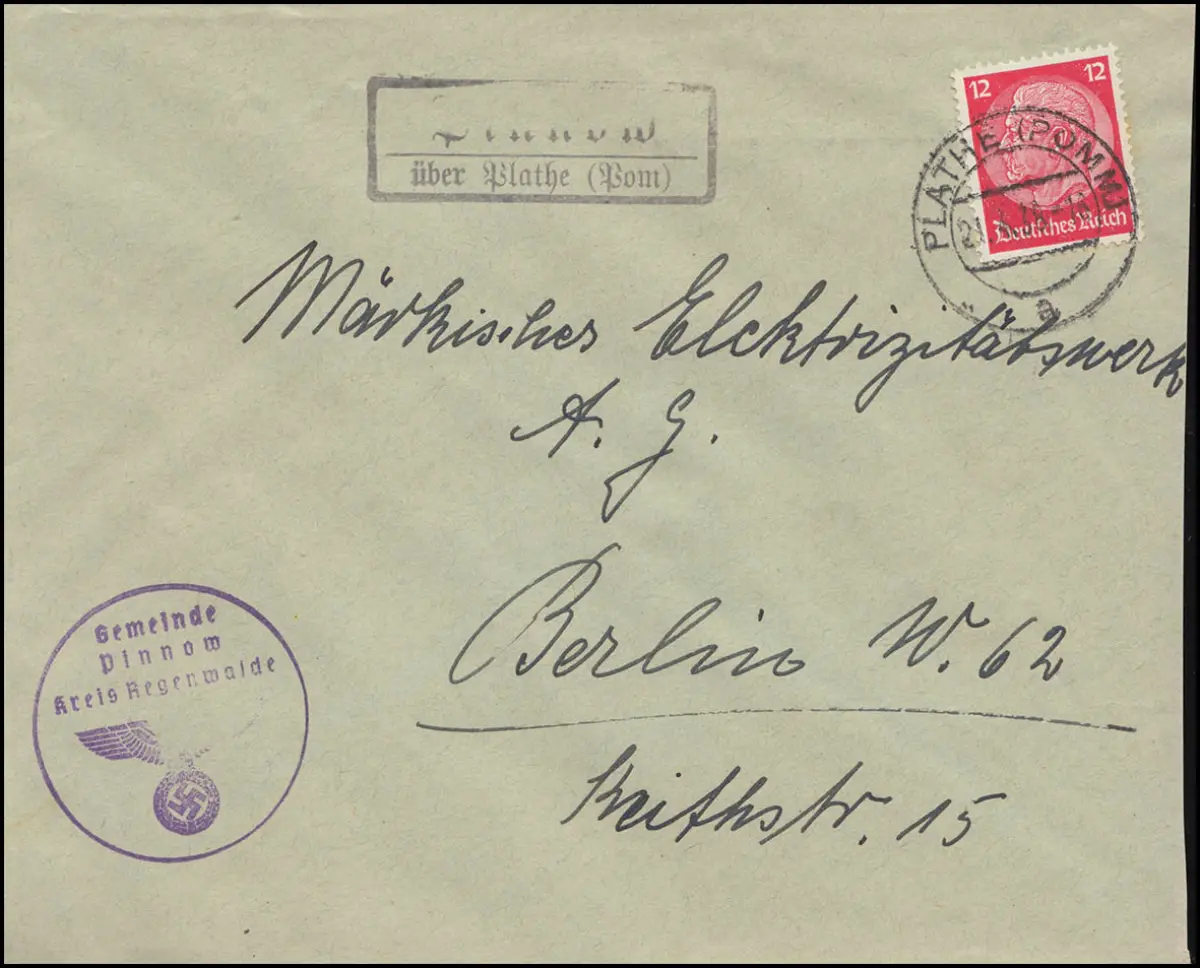 Pinnow
über Plathe (Pom)
12 12
Deutsches Reich
PLATHE (POMM)
a
Märkisches Elektrizitätswerk
A. G.
Berlin W. 62
Keithstr. 15
Gemeinde
Pinnow
Kreis Regenwalde